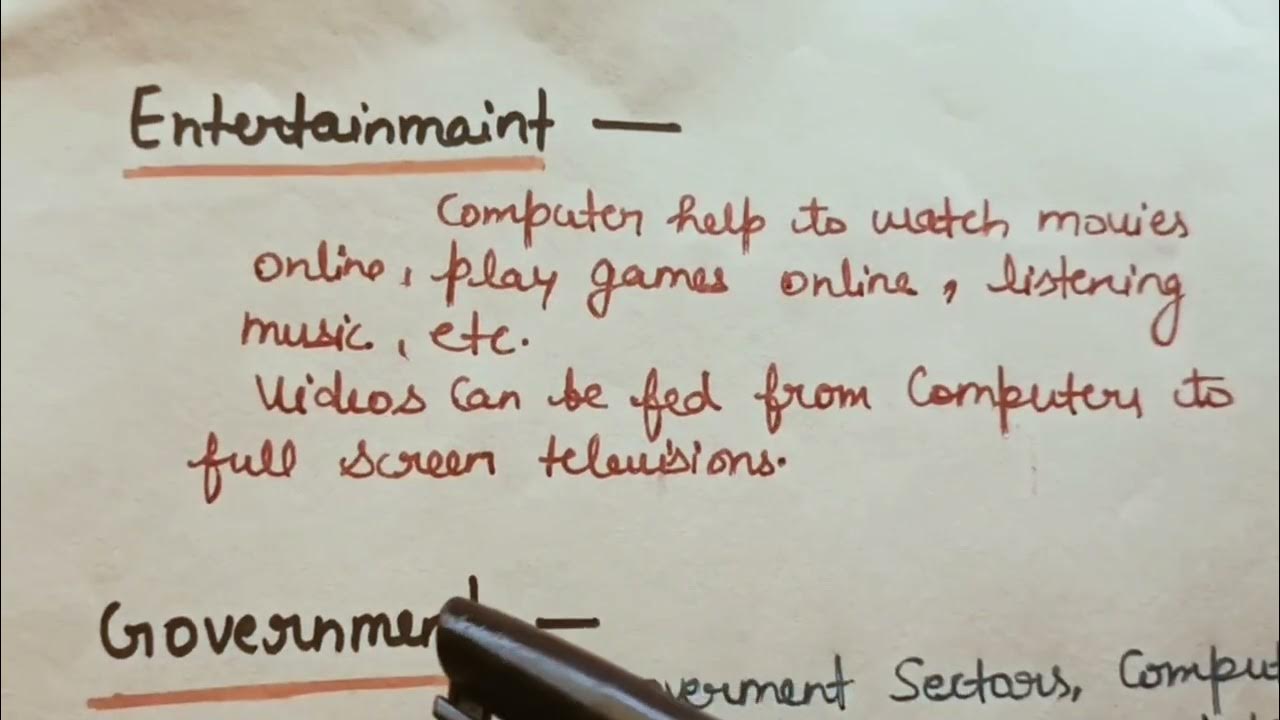 Entertainmaint —
Computer help to watch movies
online, play games online, listening
music, etc.
Videos can be fed from Computers to
full screen televisions.
Government —
Sectors,